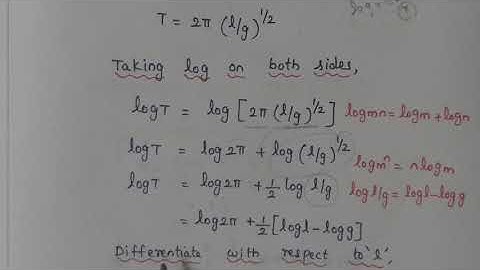 T = 2π (l/g)^1/2
Taking log on both sides,
logT = log [2π (l/g)^1/2] logmn = logm + logn
logT = log2π + log (l/g)^1/2
logmⁿ = nlogm
logT = log2π + 1/2 log l/g log l/g = logl - logg
= log2π + 1/2 [logl - logg]
Differentiate with respect to 'l',